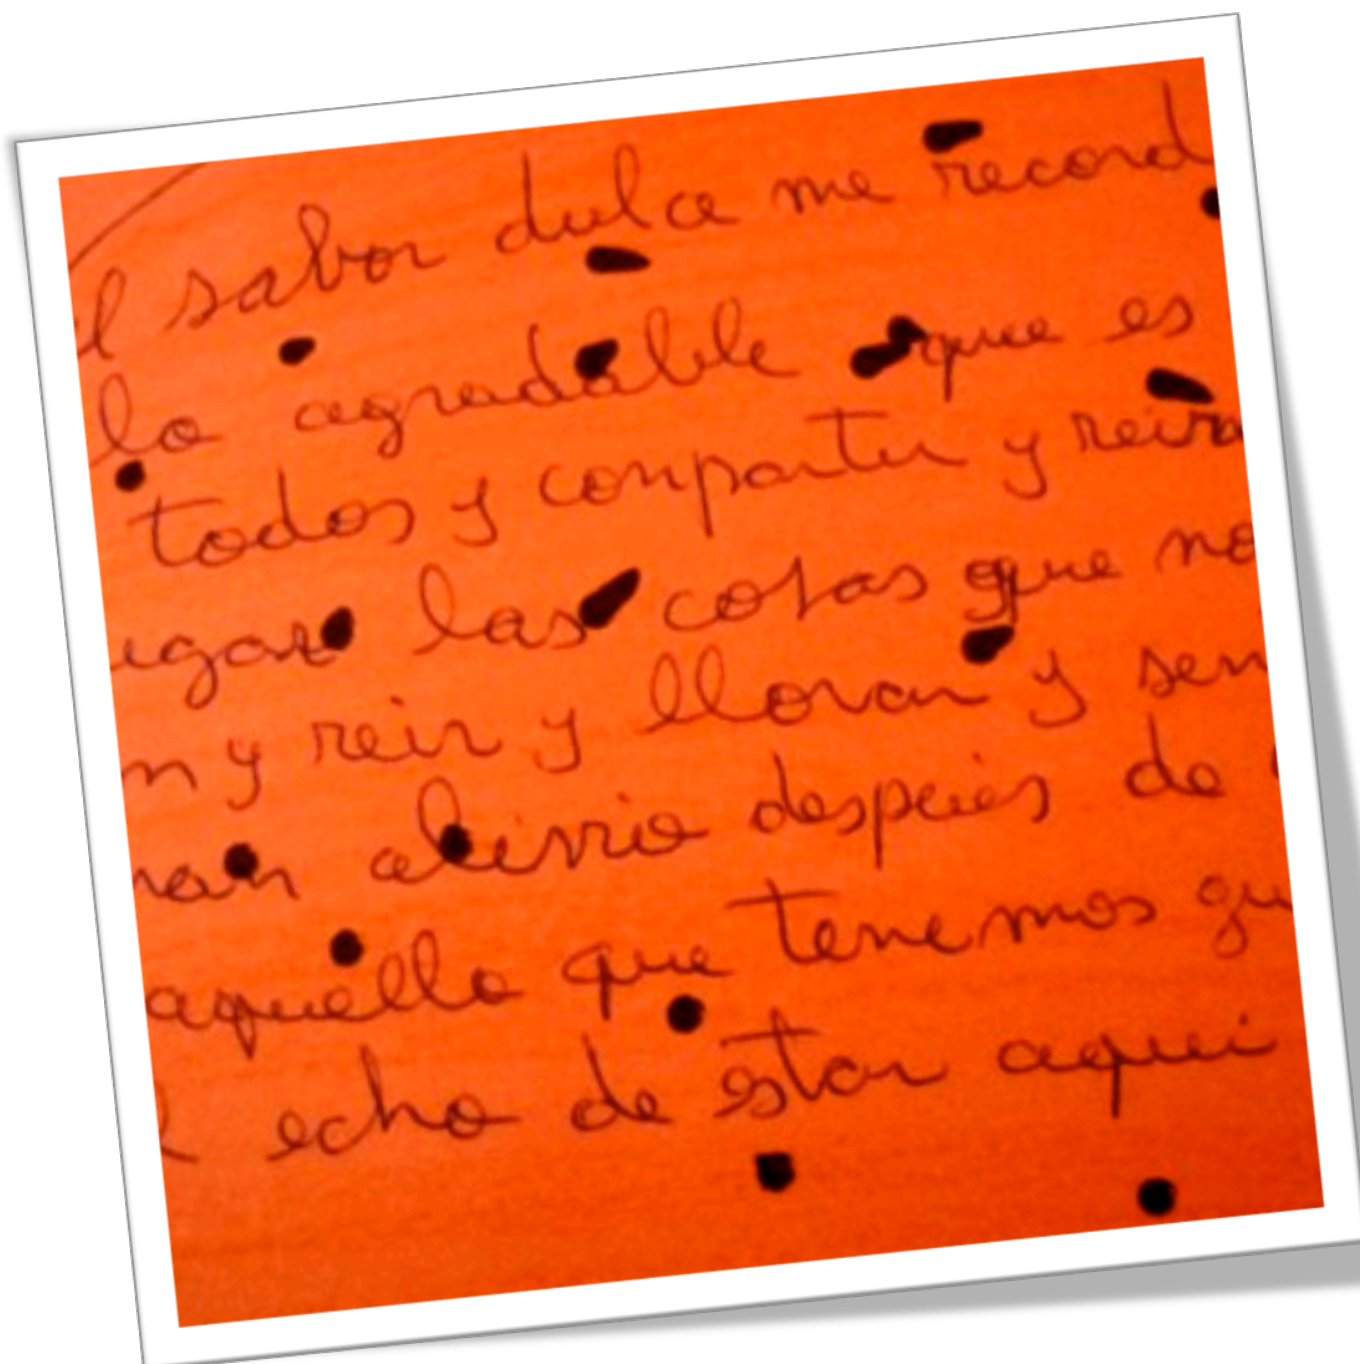 el sabor dulce me record
lo agradable que es
todos y compartir y reirn
ugar las cosas que no
n y reir y llorar y sen
ran alivio despues de
aquello que tenemos qu
l echo de estar aqui